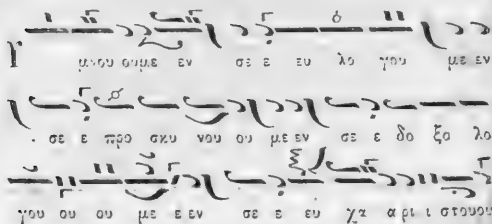 Υ μνου ουμε εν σε ε ευ λο γου με εν
σε ε προ σκυ νου ου με εν σε ε δο ξο λο
γου ου ου με ε εν σε ε ευ χα α ρι ι στουου